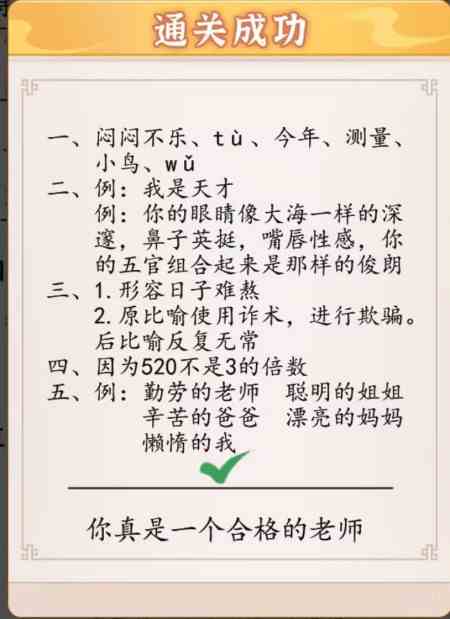 通关成功
一、闷闷不乐、tù、今年、测量、
小鸟、wǔ
二、例：我是天才
例：你的眼睛像大海一样的深
邃，鼻子英挺，嘴唇性感，你
的五官组合起来是那样的俊朗
三、1.形容日子难熬
2.原比喻使用诈术，进行欺骗。
后比喻反复无常
四、因为520不是3的倍数
五、例：勤劳的老师 聪明的姐姐
辛苦的爸爸 漂亮的妈妈
懒惰的我
你真是一个合格的老师